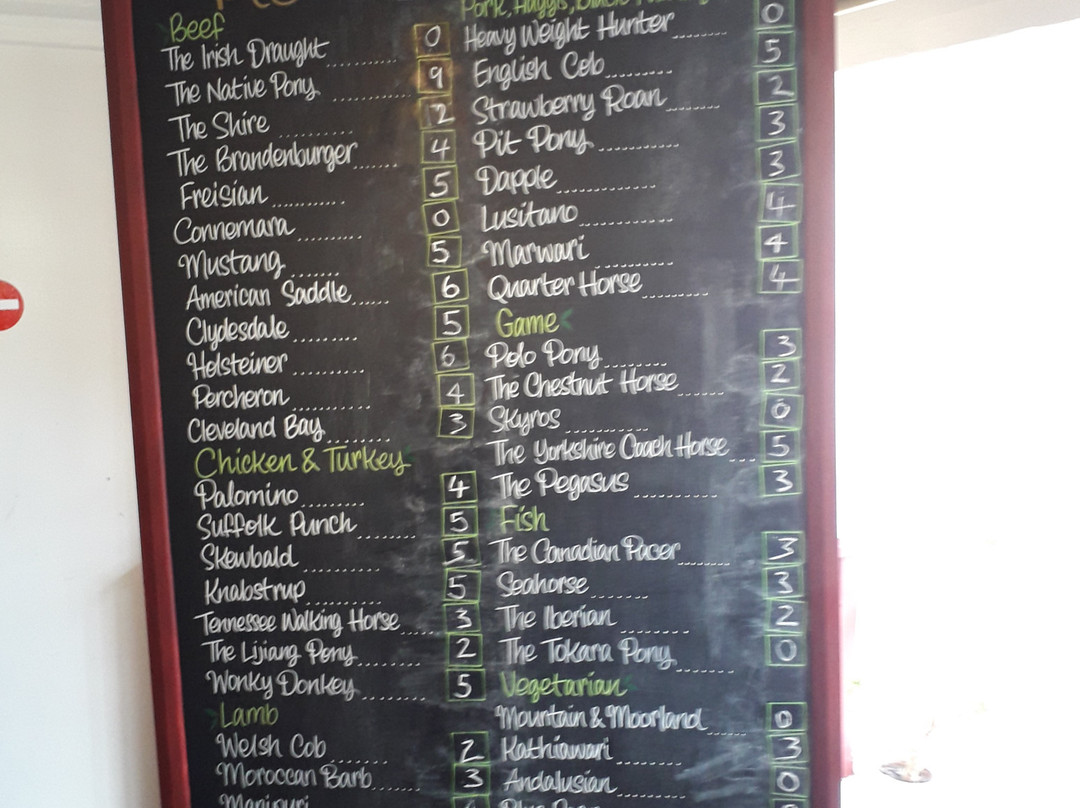 Beef
The Irish Draught .......... 0
The Native Pony ........... 9
The Shire .......... 2
The Brandenburger ...... 4
Freisian ........... 5
Connemara .......... 0
Mustang ....... 5
American Saddle ...... 6
Clydesdale ......... 5
Holsteiner .......... 6
Percheron ........... 4
Cleveland Bay ........ 3
Chicken & Turkey
Palomino ......... 4
Suffolk Punch ........ 5
Skewbald .......... 5
Knabstrup .......... 5
Tennessee Walking Horse ..... 3
The Lijiang Pony ........ 2
Wonky Donkey ........ 5
Lamb
Welsh Cob ....... 2
Moroccan Barb ....... 3
Manipuri
Pork, Haggis, Black
Heavy Weight Hunter ....... 0
English Cob ......... 5
Strawberry Roan ....... 2
Pit Pony .......... 3
Dapple ............ 3
Lusitano ............ 4
Marwari .......... 4
Quarter Horse ......... 4
Game
Polo Pony ........ 3
The Chestnut Horse ...... 2
Skyros .......... 0
The Yorkshire Coach Horse ... 5
The Pegasus .......... 3
Fish
The Canadian Pacer ....... 3
Seahorse ....... 3
The Iberian ........ 2
The Tokara Pony ......... 0
Vegetarian
Mountain & Moorland ..... 0
Kathiawari ........ 3
Andalusian .......... 0